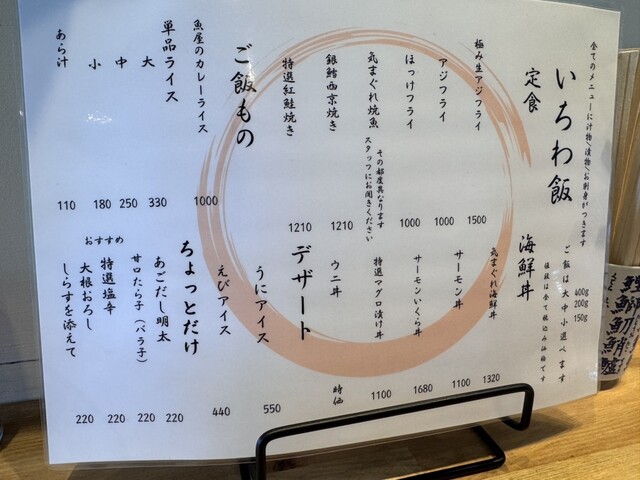 全てのメニューに汁物、漬物、お刺身がつきます
いちわ飯
ご飯は大中小選べます
400g
200g
150g
価格は全て税込み価格です
定食
極み生アジフライ 1500
アジフライ 1000
ほっけフライ 1000
気まぐれ焼魚
その都度異なります
スタッフにお聞きください
銀鱈西京焼き 1210
特選紅鮭焼き 1210
ご飯もの
魚屋のカレーライス 1000
単品ライス
大 330
中 250
小 180
あら汁 110
海鮮丼
気まぐれ海鮮丼 1320
サーモン丼 1100
サーモンいくら丼 1680
特選マグロ漬け丼 1100
ウニ丼 時価
デザート
うにアイス 550
えびアイス 440
ちょっとだけ
あごだし明太 220
甘口たら子(バラ子) 220
おすすめ
特選塩辛 220
大根おろし
しらすを添えて 220